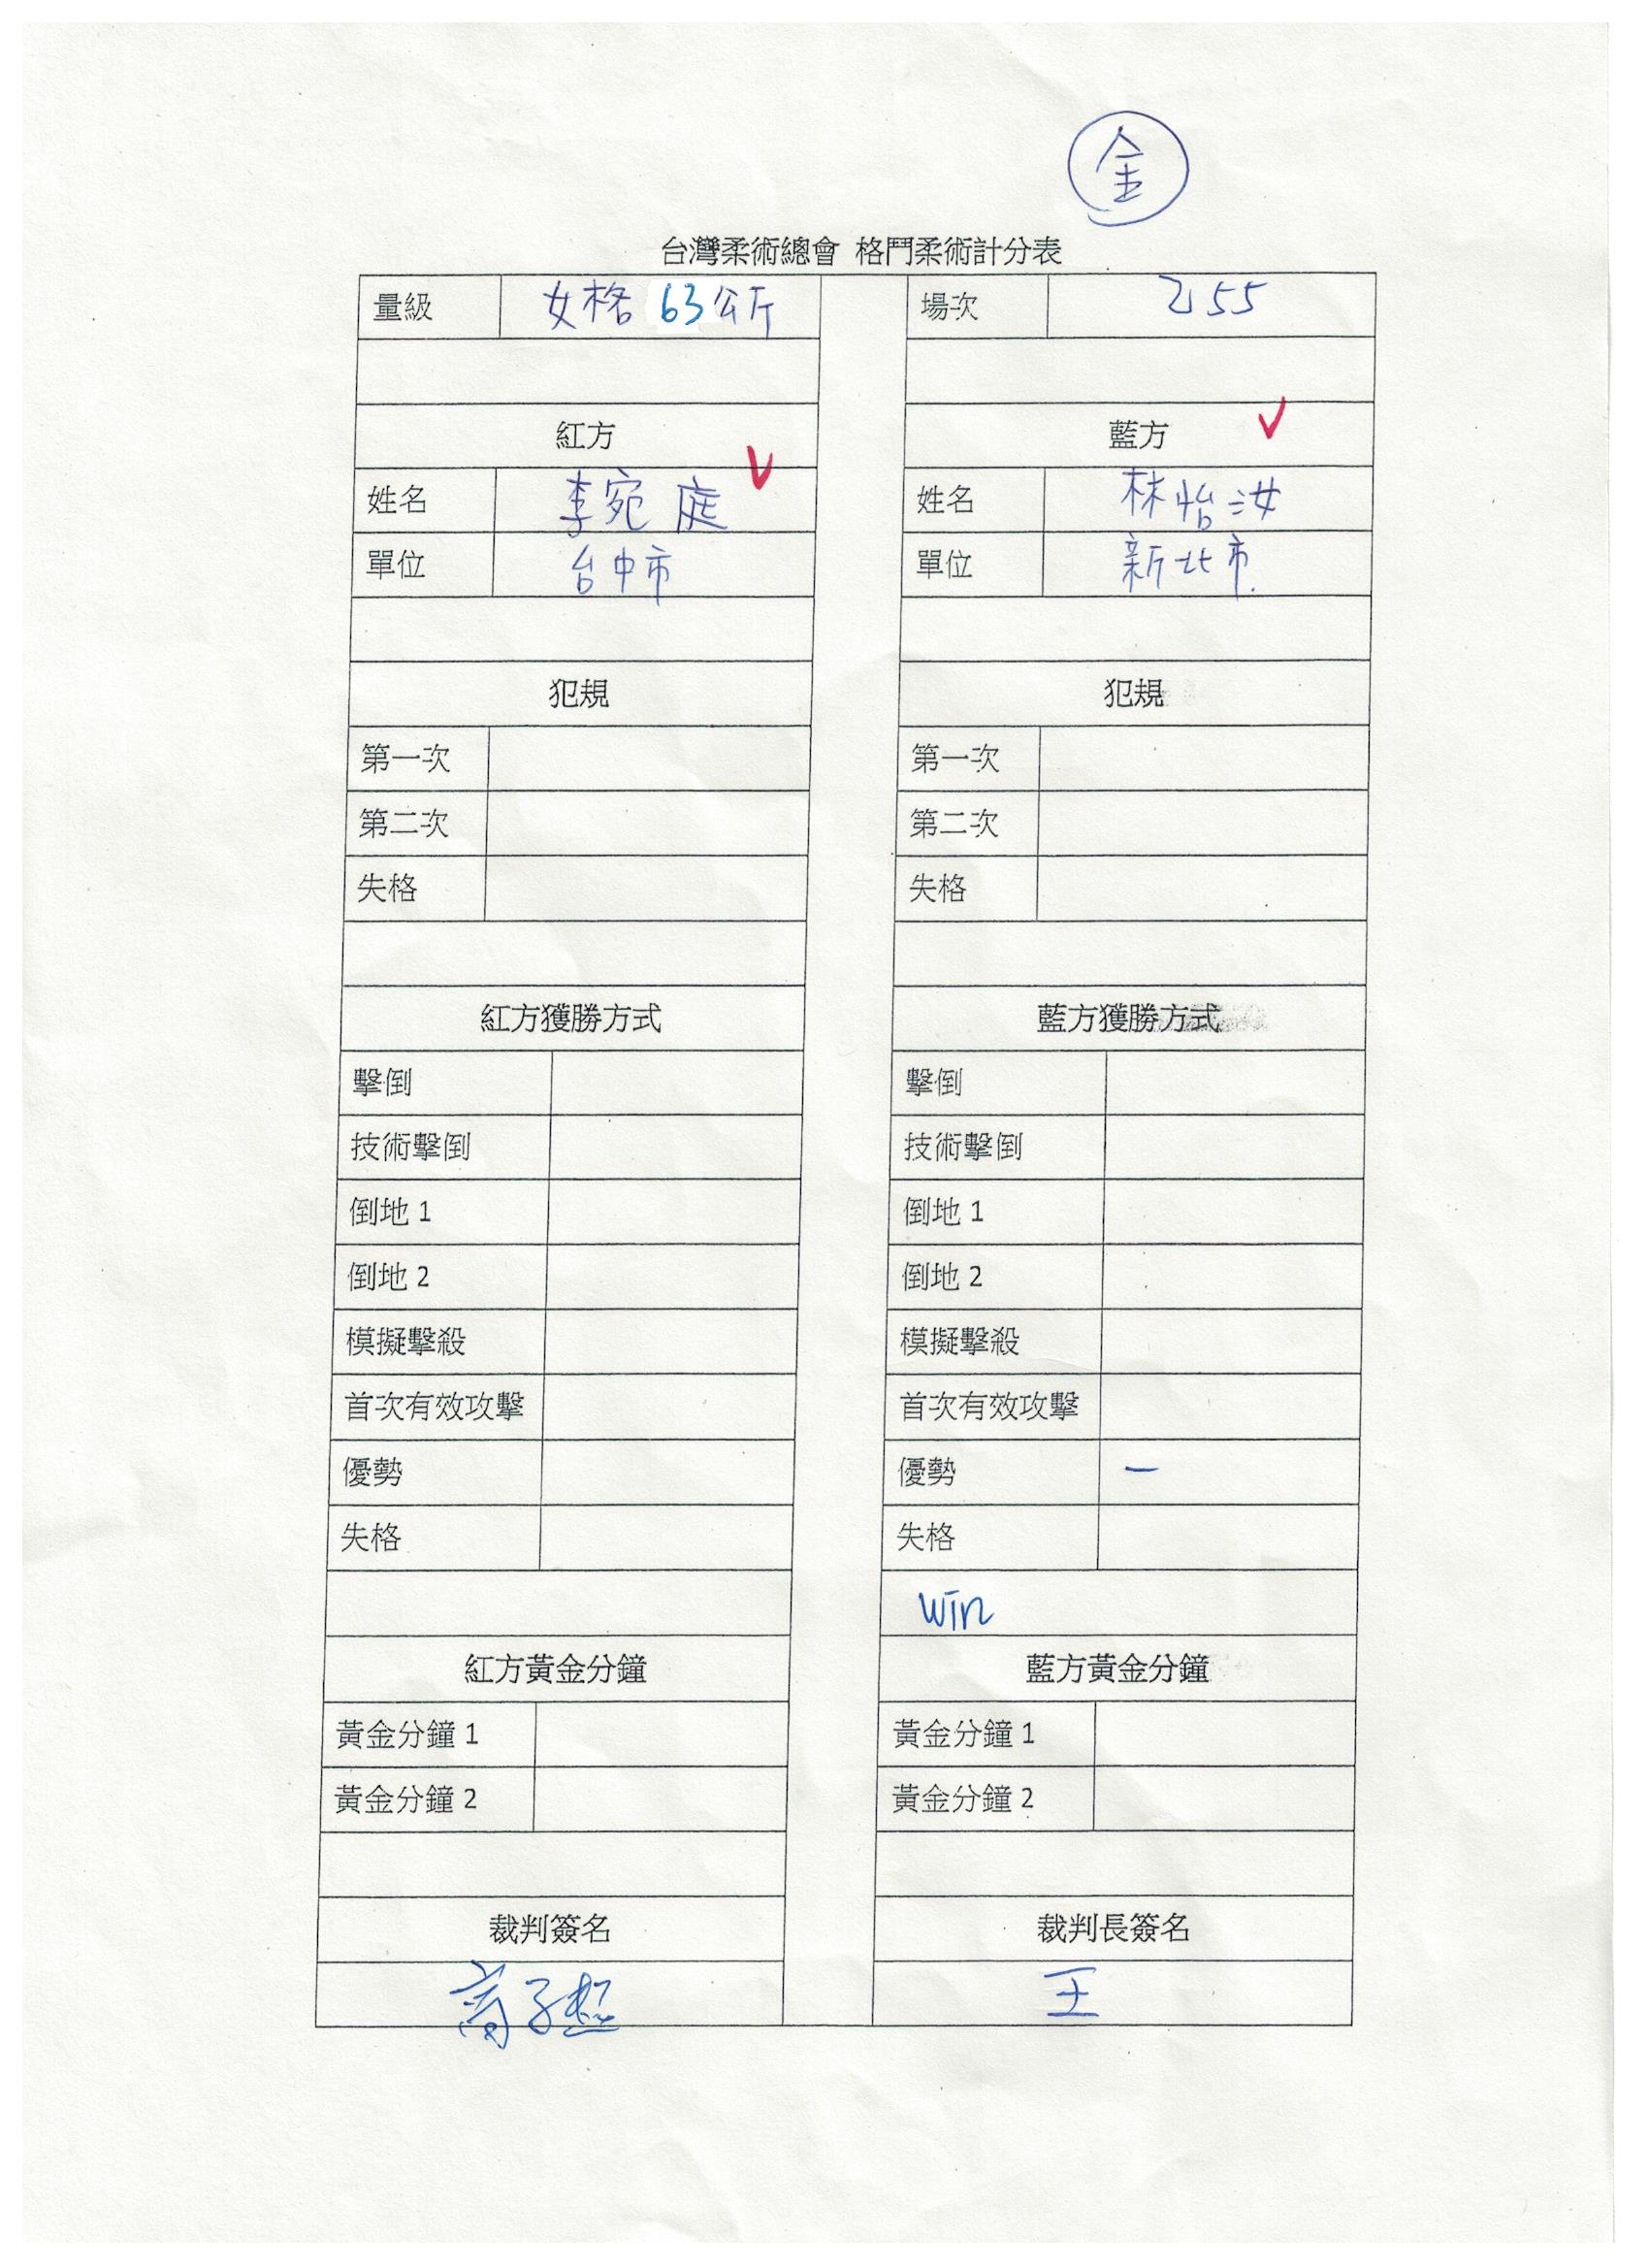 金
台灣柔術總會 格鬥柔術計分表
量級 女格 63公斤 場次 255
紅方 藍方
姓名 李宛庭 姓名 林怡汝
單位 台中市 單位 新北市
犯規 犯規
第一次 第一次
第二次 第二次
失格 失格
紅方獲勝方式 藍方獲勝方式
擊倒 擊倒
技術擊倒 技術擊倒
倒地 1 倒地 1
倒地 2 倒地 2
模擬擊殺 模擬擊殺
首次有效攻擊 首次有效攻擊
優勢 優勢 一
失格 失格
win
紅方黃金分鐘 藍方黃金分鐘
黃金分鐘 1 黃金分鐘 1
黃金分鐘 2 黃金分鐘 2
裁判簽名 裁判長簽名
王